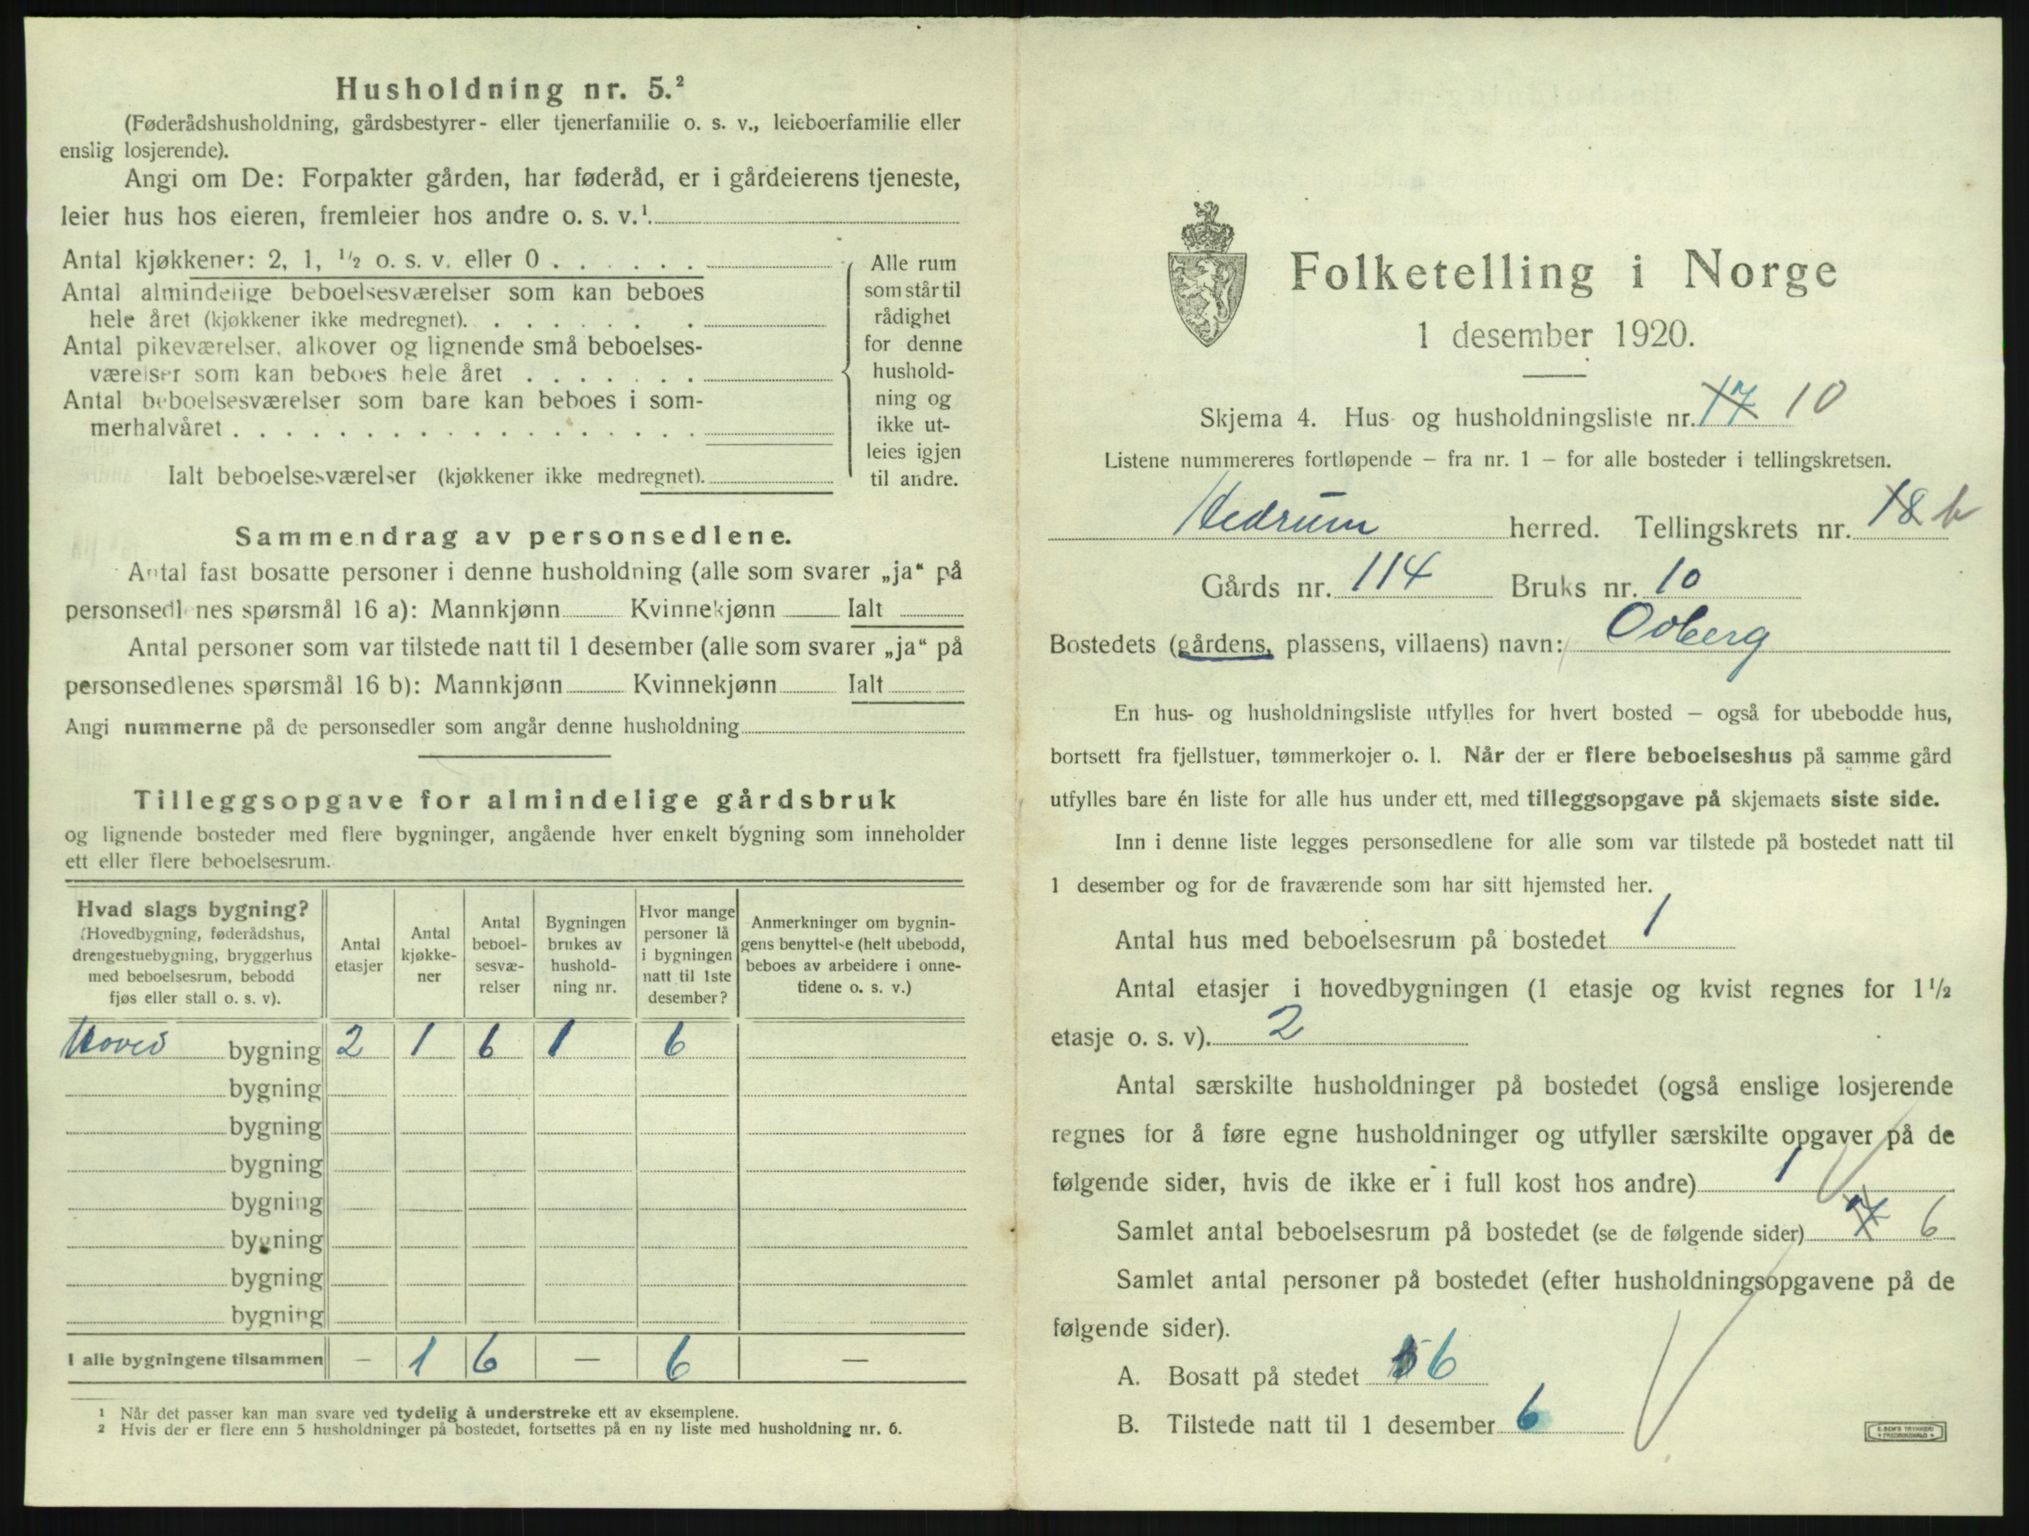 Husholdning nr. 5.²
(Føderådshusholdning, gårdsbestyrer- eller tjenerfamilie o. s. v., leieboerfamilie eller
enslig losjerende).
Angi om De: Forpakter gården, har føderåd, er i gårdeierens tjeneste,
leier hus hos eieren, fremleier hos andre o. s. v.¹
Antal kjøkkener: 2, 1, ½ o. s. v. eller 0 . . . . . .
Antal almindelige beboelsesværelser som kan beboes
hele året (kjøkkener ikke medregnet). . . . . . . .
Antal pikeværelser, alkover og lignende små beboelses-
værelser som kan beboes hele året . . . . . . .
Antal beboelsesværelser som bare kan beboes i som-
merhalvåret . . . . . . . . . . . . . . . . . .
Ialt beboelsesværelser (kjøkkener ikke medregnet).
Alle rum
som står til
rådighet
for denne
hushold-
ning og
ikke ut-
leies igjen
til andre.
Sammendrag av personsedlene.
Antal fast bosatte personer i denne husholdning (alle som svarer „ja“ på
personsedlenes spørsmål 16 a): Mannkjønn Kvinnekjønn Ialt
Antal personer som var tilstede natt til 1 desember (alle som svarer „ja“ på
personsedlenes spørsmål 16 b): Mannkjønn Kvinnekjønn Ialt
Angi nummerne på de personsedler som angår denne husholdning
Tilleggsopgave for almindelige gårdsbruk
og lignende bosteder med flere bygninger, angående hver enkelt bygning som inneholder
ett eller flere beboelsesrum.
Hvad slags bygning?
(Hovedbygning, føderådshus,
drengestuebygning, bryggerhus
med beboelsesrum, bebodd
fjøs eller stall o. s. v).
Antal
etasjer
Antal
kjøkke-
ner
Antal
beboel-
sesvæ-
relser
Bygningen
brukes av
hushold-
ning nr.
Hvor mange
personer lå
i bygningen
natt til 1ste
desember?
Anmerkninger om bygnin-
gens benyttelse (helt ubebodd,
beboes av arbeidere i onne-
tidene o. s. v.)
Hoved bygning 2 1 6 1 6
bygning
bygning
bygning
bygning
bygning
bygning
bygning
I alle bygningene tilsammen — 1 6 — 6 —
¹ Når det passer kan man svare ved tydelig å understreke ett av eksemplene.
² Hvis der er flere enn 5 husholdninger på bostedet, fortsettes på en ny liste med husholdning nr. 6.
Folketelling i Norge
1 desember 1920.
Skjema 4. Hus- og husholdningsliste nr. 17 10
Listene nummereres fortløpende – fra nr. 1 – for alle bosteder i tellingskretsen.
Hedrum herred. Tellingskrets nr. 18 b
Gårds nr. 114 Bruks nr. 10
Bostedets (gårdens, plassens, villaens) navn: Odberg
En hus- og husholdningsliste utfylles for hvert bosted – også for ubebodde hus,
bortsett fra fjellstuer, tømmerkojer o. l. Når der er flere beboelseshus på samme gård
utfylles bare én liste for alle hus under ett, med tilleggsopgave på skjemaets siste side.
Inn i denne liste legges personsedlene for alle som var tilstede på bostedet natt til
1 desember og for de fraværende som har sitt hjemsted her.
Antal hus med beboelsesrum på bostedet 1
Antal etasjer i hovedbygningen (1 etasje og kvist regnes for 1½
etasje o. s. v). 2
Antal særskilte husholdninger på bostedet (også enslige losjerende
regnes for å føre egne husholdninger og utfyller særskilte opgaver på de
følgende sider, hvis de ikke er i full kost hos andre) 1
Samlet antal beboelsesrum på bostedet (se de følgende sider) 7 6
Samlet antal personer på bostedet (efter husholdningsopgavene på de
følgende sider).
A. Bosatt på stedet 6
B. Tilstede natt til 1 desember 6